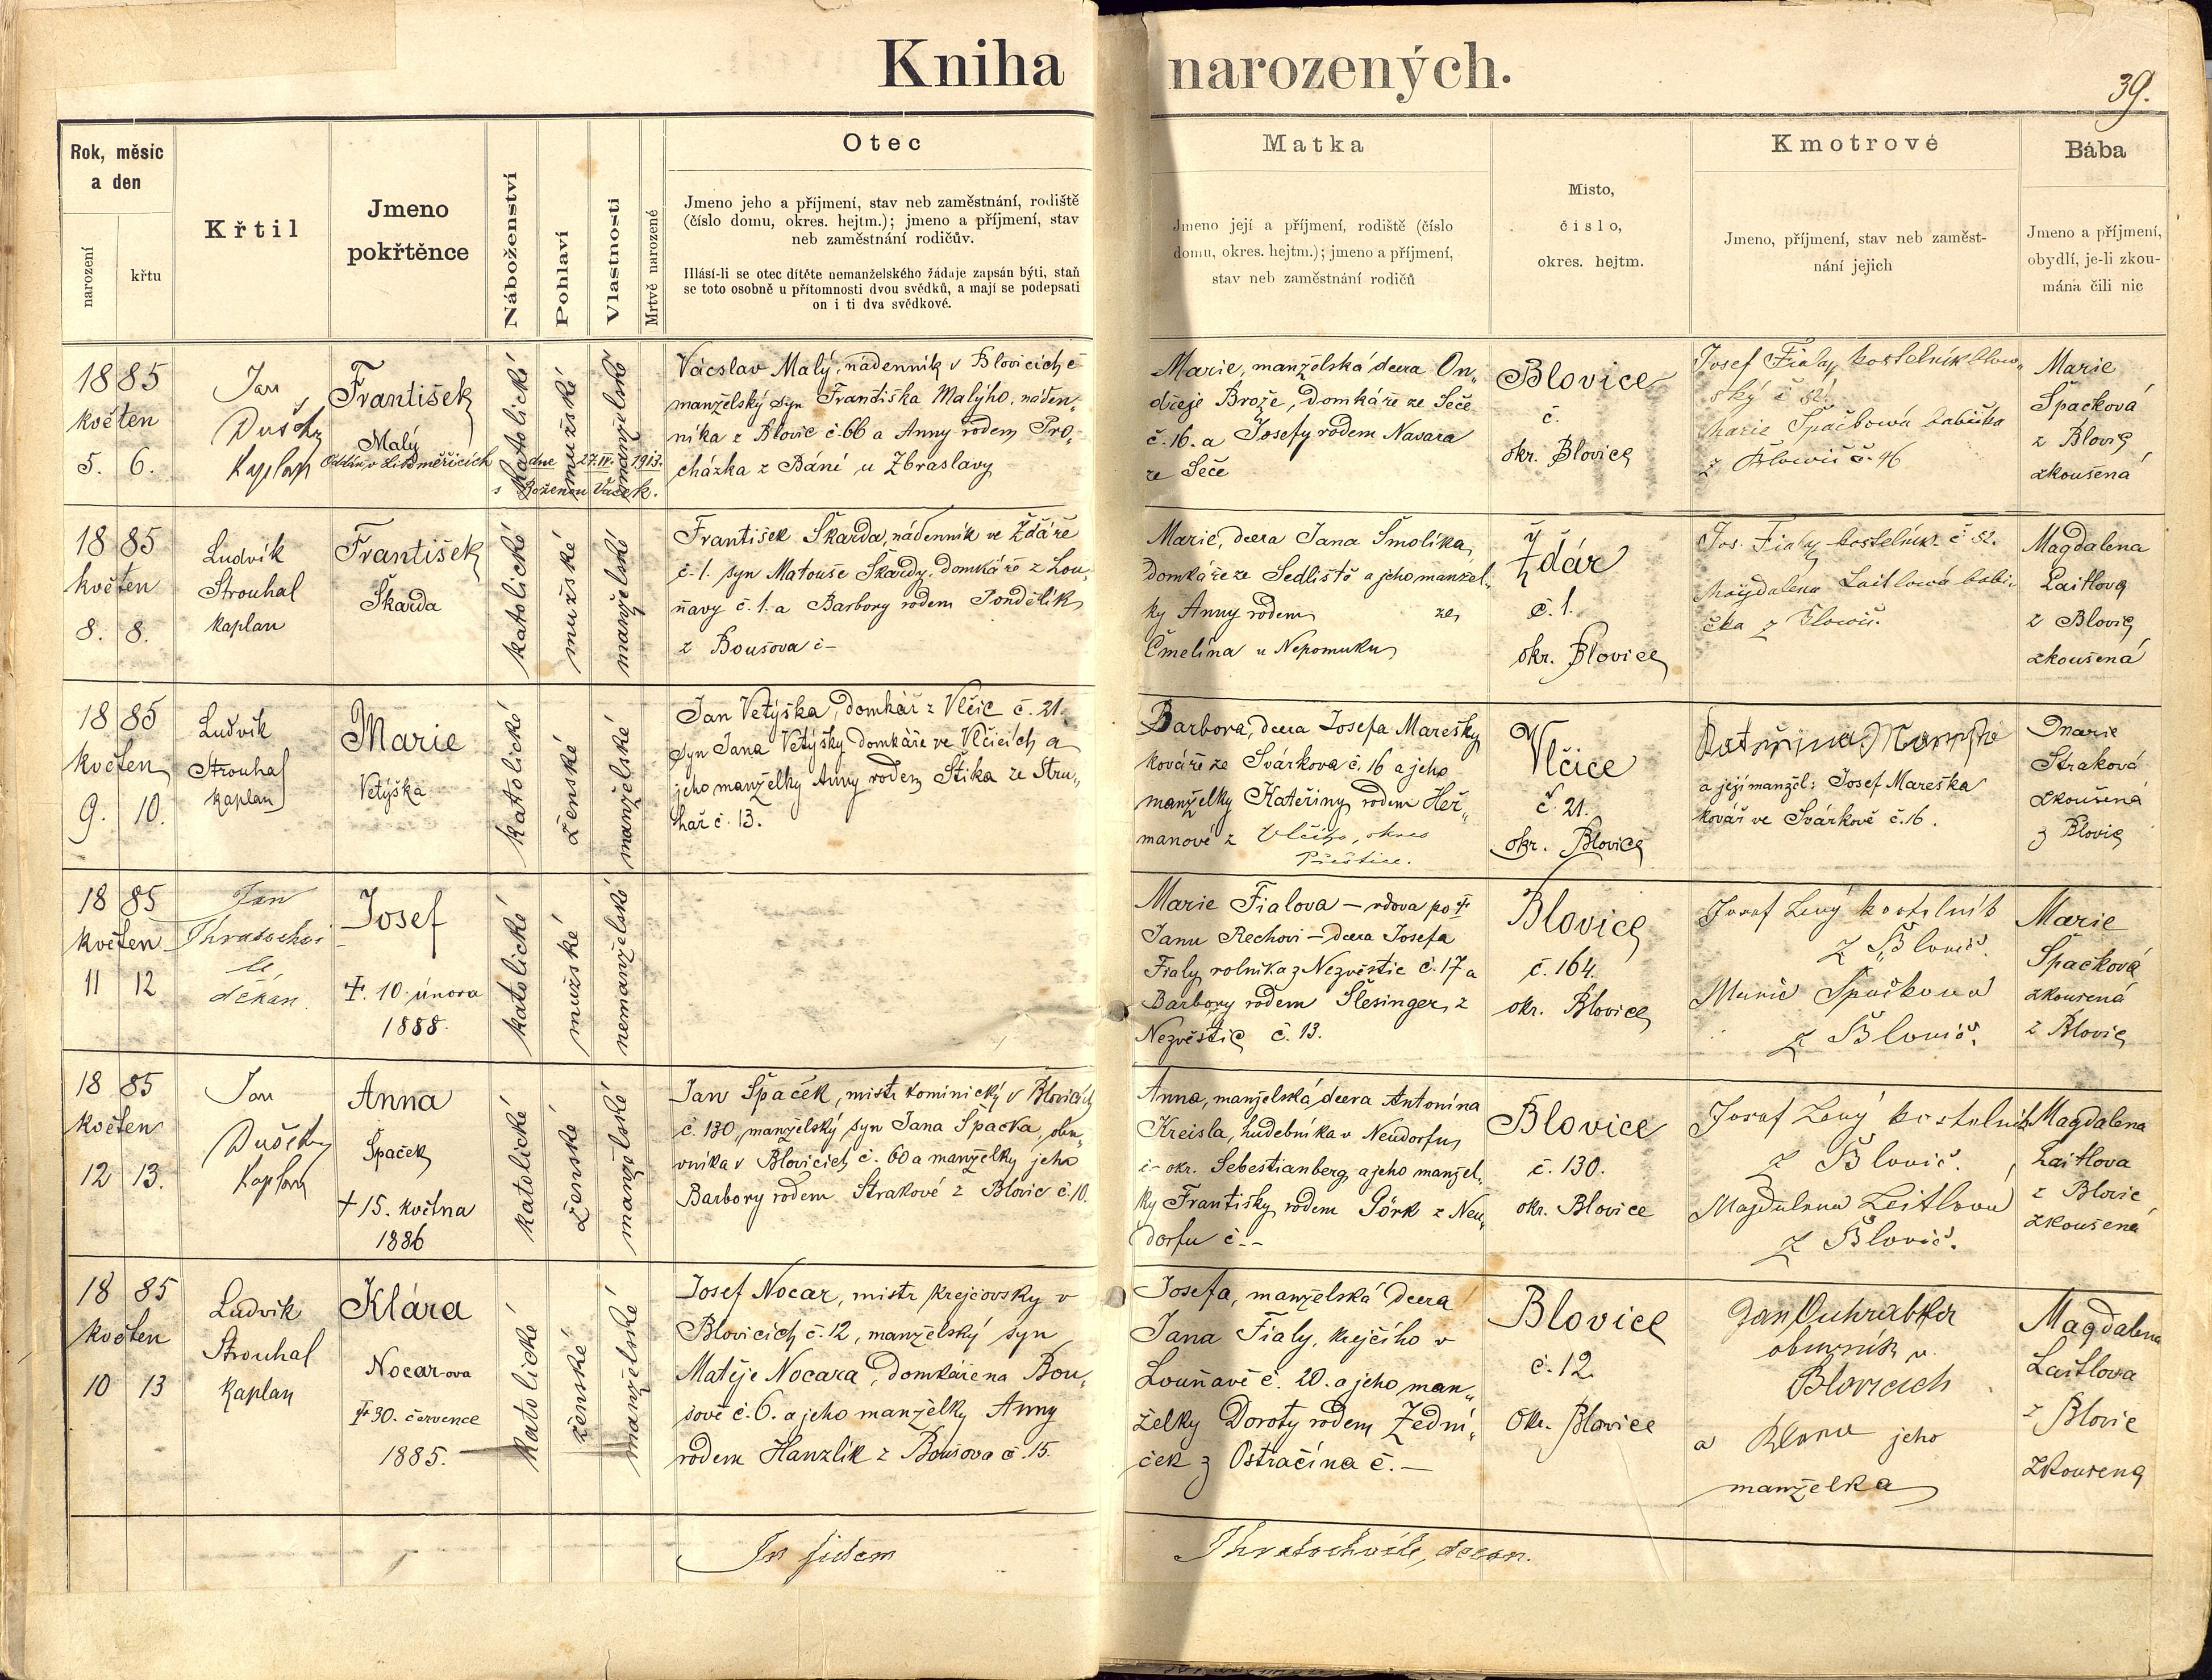 Kniha narozených.
39.
Rok, měsíc
a den
narození
křtu
Křtil
Jmeno
pokřtěnce
Náboženství
Pohlaví
Vlastnosti
Mrtvě narozené
Otec
Jmeno jeho a příjmení, stav neb zaměstnání, rodiště
(číslo domu, okres. hejtm.); jmeno a příjmení, stav
neb zaměstnání rodičův.
Hlásí-li se otec dítěte nemanželského žádaje zapsán býti, staň
se toto osobně u přítomnosti dvou svědků, a mají se podepsati
on i ti dva svědkové.
Matka
Jmeno její a příjmení, rodiště (číslo
domu, okres. hejtm.); jmeno a příjmení,
stav neb zaměstnání rodičů
Místo,
číslo,
okres. hejtm.
Kmotrové
Jmeno, příjmení, stav neb zaměst-
nání jejich
Bába
Jmeno a příjmení,
obydlí, je-li zkou-
mána čili nic
1885
květen
5. 6.
Jan
Dušek
Kaplan
František
Malý
Oddán v Litoměřicích dne 27.IV. 1913.
s Boženou Vacek.
katolické
mužské
manželské
Václav Malý, nádenník v Blovicích č
manželský syn Františka Malýho, náden„
níka z Blovic č. 66 a Anny rodem Pro„
cházka z Báně u Zbraslavy
Marie, manželská dcera On„
dřeje Brože, domkáře ze Seče
č. 16. a Josefy rodem Navara
ze Seče
Blovice
č.
okr. Blovice
Josef Fiala, kostelník blov„
ský č 52.
Marie Špačková babička
z Blovic č. 46
Marie
Špačková
z Blovic
zkoušená
1885
květen
8. 8.
Ludvík
Strouhal
kaplan
František
Škarda
katolické
mužské
manželské
František Škarda, nádenník ve Ždáře
č. 1. syn Matouše Škardy, domkáře z Lou„
ňavy č. 1. a Barbory rodem Pondělík
z Boušova č –
Marie, dcera Jana Smolíka,
domkáře ze Sedliště a jeho manžel„
ky Anny rodem ze
Čmelína u Nepomuku
Ždár
č. 1.
okr. Blovice
Jos. Fiala kostelník č 52.
Magdalena Laitlová babi„
čka z Blovic.
Magdalena
Laitlova
z Blovic
zkoušená
1885
květen
9. 10.
Ludvík
Strouhal
kaplan
Marie
Vetýška
katolické
ženské
manželské
Jan Vetýška, domkář z Vlčic č. 21.
syn Jana Vetýšky domkáře ve Vlčicích a
jeho manželky Anny rodem Štika ze Stru„
hař č. 13.
Barbora, dcera Josefa Marešky
kováře ze Svárkova č. 16 a jeho
manželky Kateřiny rodem Heř„
manové z Vlčího, okres
Přeštice.
Vlčice
č. 21.
okr. Blovice
Kateřina Mareška
a její manžel: Josef Mareška
kovář ve Svárkově č. 16.
Marie
Straková
zkoušená
z Blovic
1885
květen
11 12
Jan
děkan.
Josef
†. 10. února
1888.
katolické
mužské
nemanželské
Marie Fialova – vdova po †
Janu Rechovi – dcera Josefa
Fialy rolníka z Nezvěstic č. 17 a
Barbory rodem Šlesinger z
Nezvěstic č. 13.
Blovice
č. 164.
okr. Blovice
Josef Levý kostelník
z Blovic.
Marie Špačkova
z Blovic.
Marie
Špačková
zkoušená
z Blovic
1885
květen
12 13.
Jan
Dušek
Kaplan
Anna
Špaček
† 15. května
1886
katolické
ženské
manželské
Jan Špaček, mistr kominický v Blovicích
č. 130, manželský syn Jana Špačka, obu„
vníka v Blovicích č. 60 a manželky jeho
Barbory rodem Strakové z Blovic č. 10.
Anna, manželská dcera Antonína
Kreisla, hudebníka v Neudorfu
č – okr. Sebestianberg a jeho manžel„
ky Františky rodem Görk z Neu„
dorfu č. –
Blovice
č. 130.
okr. Blovice
Josef Levý kostelník
z Blovic.
Magdalena Leitlová
z Blovic.
Magdalena
Laitlova
z Blovic
zkoušená
1885
květen
10 13
Ludvík
Strouhal
kaplan
Klára
Nocar-ova
† 30. července
1885.
katolické
ženské
manželské
Josef Nocar, mistr krejčovský v
Blovicích č. 12, manželský syn
Matěje Nocara, domkáře na Bou„
šově č. 6. a jeho manželky Anny
rodem Hanzlík z Boušova č. 15.
Josefa, manželská dcera
Jana Fialy, krejčího v
Louňavě č. 20. a jeho man„
želky Doroty rodem Zední„
ček z Ostračína č. –
Blovice
č. 12.
Okr. Blovice
Jan Ouhrabka
obuvník v
Blovicích
a Klara jeho
manželka
Magdalena
Laitlova
z Blovic
zkoušena
In fidem